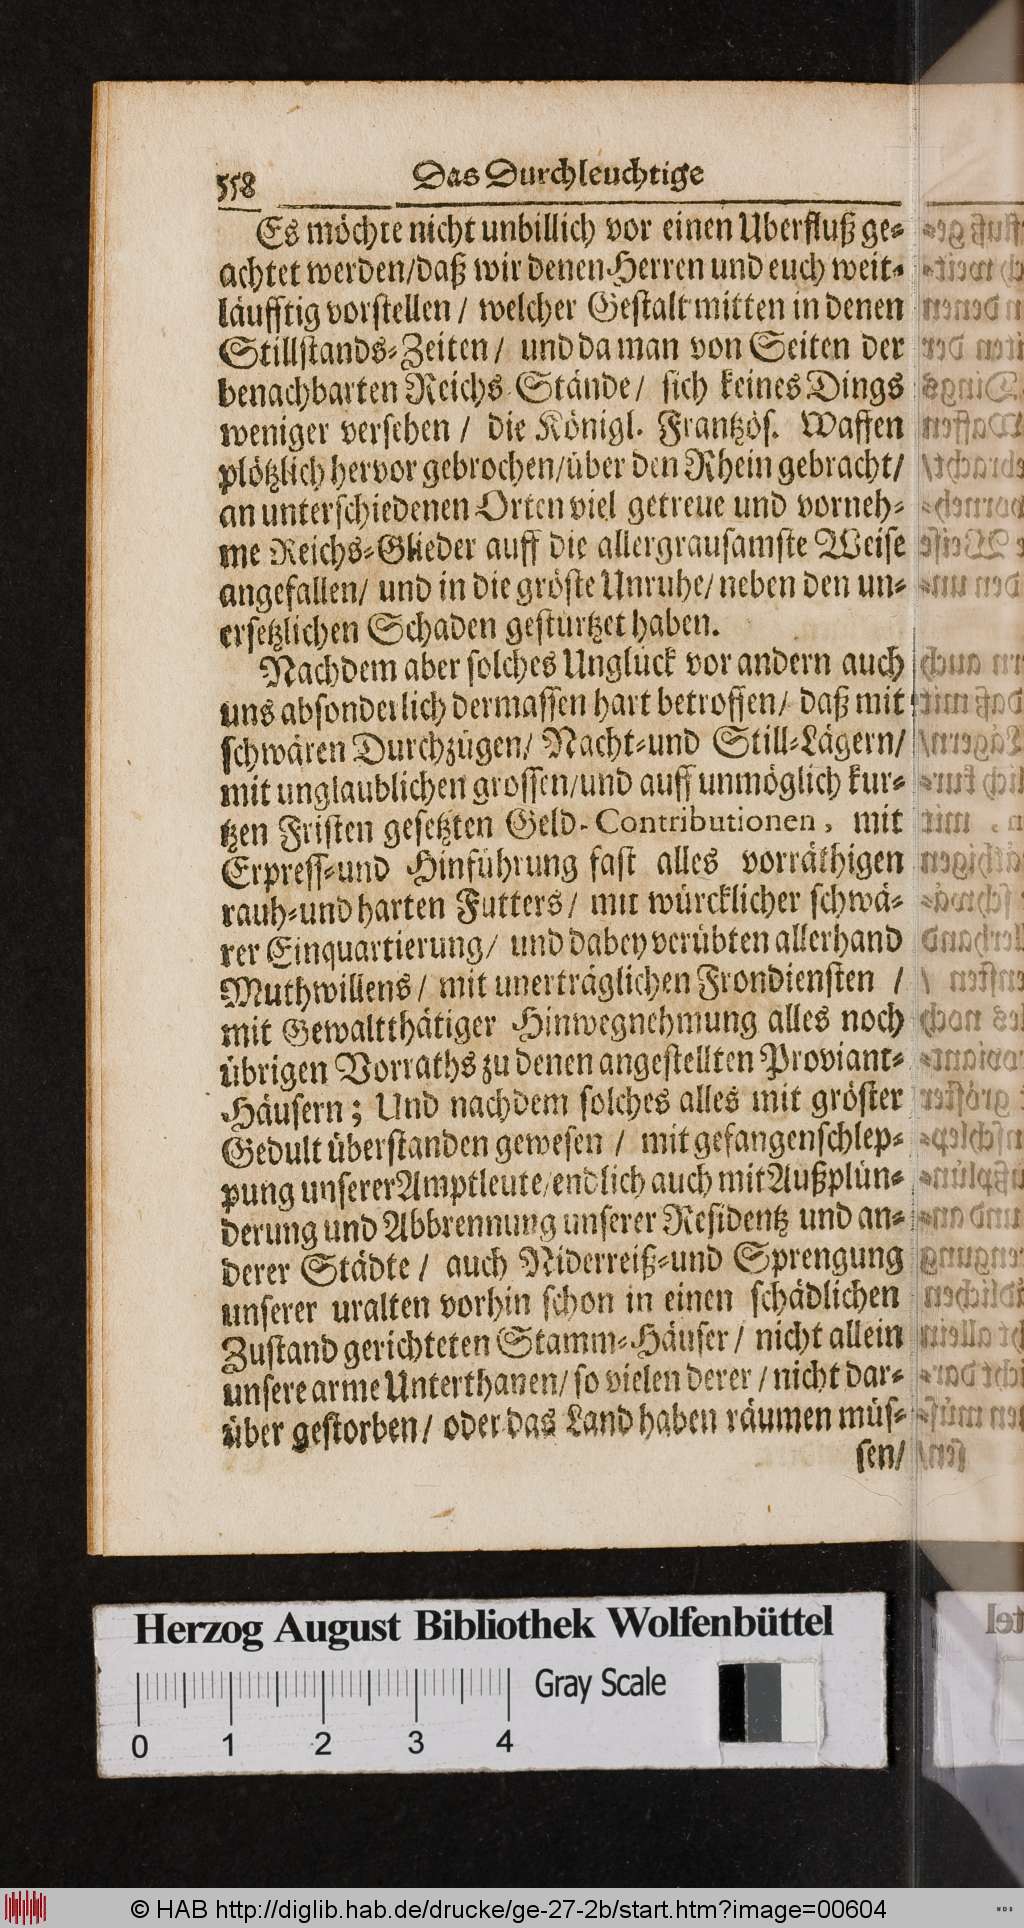 558 Das Durchleuchtige
Es möchte nicht unbillich vor einen Uberfluß ge-
achtet werden/daß wir denen Herren und euch weit-
läufftig vorstellen / welcher Gestalt mitten in denen
Stillstands-Zeiten / und da man von Seiten der
benachbarten Reichs-Stände / sich keines Dings
weniger versehen / die Königl. Frantzös. Waffen
plötzlich hervor gebrochen/über den Rhein gebracht/
an unterschiedenen Orten viel getreue und vorneh-
me Reichs-Glieder auff die allergrausamste Weise
angefallen/ und in die gröste Unruhe/ neben den un-
ersetzlichen Schaden gestürtzet haben.
Nachdem aber solches Unglück vor andern auch
uns absonderlich dermassen hart betroffen/ daß mit
schwären Durchzügen/ Nacht-und Still-Lägern/
mit unglaublichen grossen/und auff unmöglich kur-
tzen Fristen gesetzten Geld-Contributionen, mit
Erpress-und Hinführung fast alles vorräthigen
rauh-und harten Futters / mit würcklicher schwä-
rer Einquartierung/ und dabey verübten allerhand
Muthwillens / mit unerträglichen Frondiensten /
mit Gewaltthätiger Hinwegnehmung alles noch
übrigen Vorraths zu denen angestellten Proviant-
Häusern; Und nachdem solches alles mit gröster
Gedult überstanden gewesen / mit gefangenschlep-
pung unserer Amptleute/endlich auch mit Außplün-
derung und Abbrennung unserer Residentz und an-
derer Städte / auch Niderreiß-und Sprengung
unserer uralten vorhin schon in einen schädlichen
Zustand gerichteten Stamm-Häuser / nicht allein
unsere arme Unterthanen/ so vielen derer / nicht dar-
über gestorben / oder das Land haben räumen müs-
sen/
Herzog August Bibliothek Wolfenbüttel
Gray Scale
0 1 2 3 4
© HAB http://diglib.hab.de/drucke/ge-27-2b/start.htm?image=00604